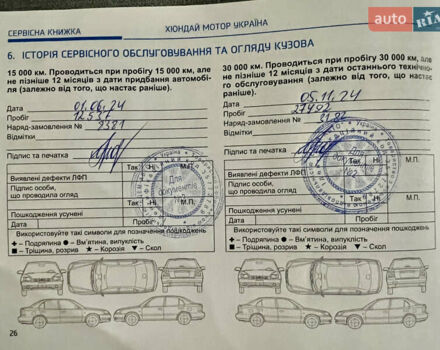 СЕРВІСНА КНИЖКА
ХЮНДАЙ МОТОР УКРАЇНА
auto RIA
6. ІСТОРІЯ СЕРВІСНОГО ОБСЛУГОВУВАННЯ ТА ОГЛЯДУ КУЗОВА
15 000 км. Проводиться при пробігу 15 000 км, але
не пізніше 12 місяців з дати придбання автомобі-
ля (залежно від того, що настає
раніше).
Дата 01.06.24
Пробіг 12537
Наряд-замовлення № 2381
Відмітки
Підпис та печатка
Виявлені дефекти ЛФП Так Ні М.П.
Підпис особи,
що проводила огляд
Пошкодження усунені Дата Пробіг
Використовуйте такі символи для позначення пошкоджень
+ – Подряпина ● – Вм'ятина, випуклість
■ – Тріщина, розрив ★ – Корозія ▼ – Скол
26
30 000 км. Проводиться при пробігу 30 000 км, але
не пізніше 12 місяців з дати останнього технічно-
го обслуговування (залежно від того, що настає
раніше).
Дата 05.11.24
Пробіг 27492
Наряд-замовлення №
Відмітки
Підпис та печатка
Виявлені дефекти ЛФП Так Ні М.П.
Підпис особи,
що проводила огляд
Пошкодження усунені Дата Пробіг
Використовуйте такі символи для позначення пошкоджень
+ – Подряпина ● – Вм'ятина, випуклість
■ – Тріщина, розрив ★ – Корозія ▼ – Скол
Україна
Для
документів
Для
документів